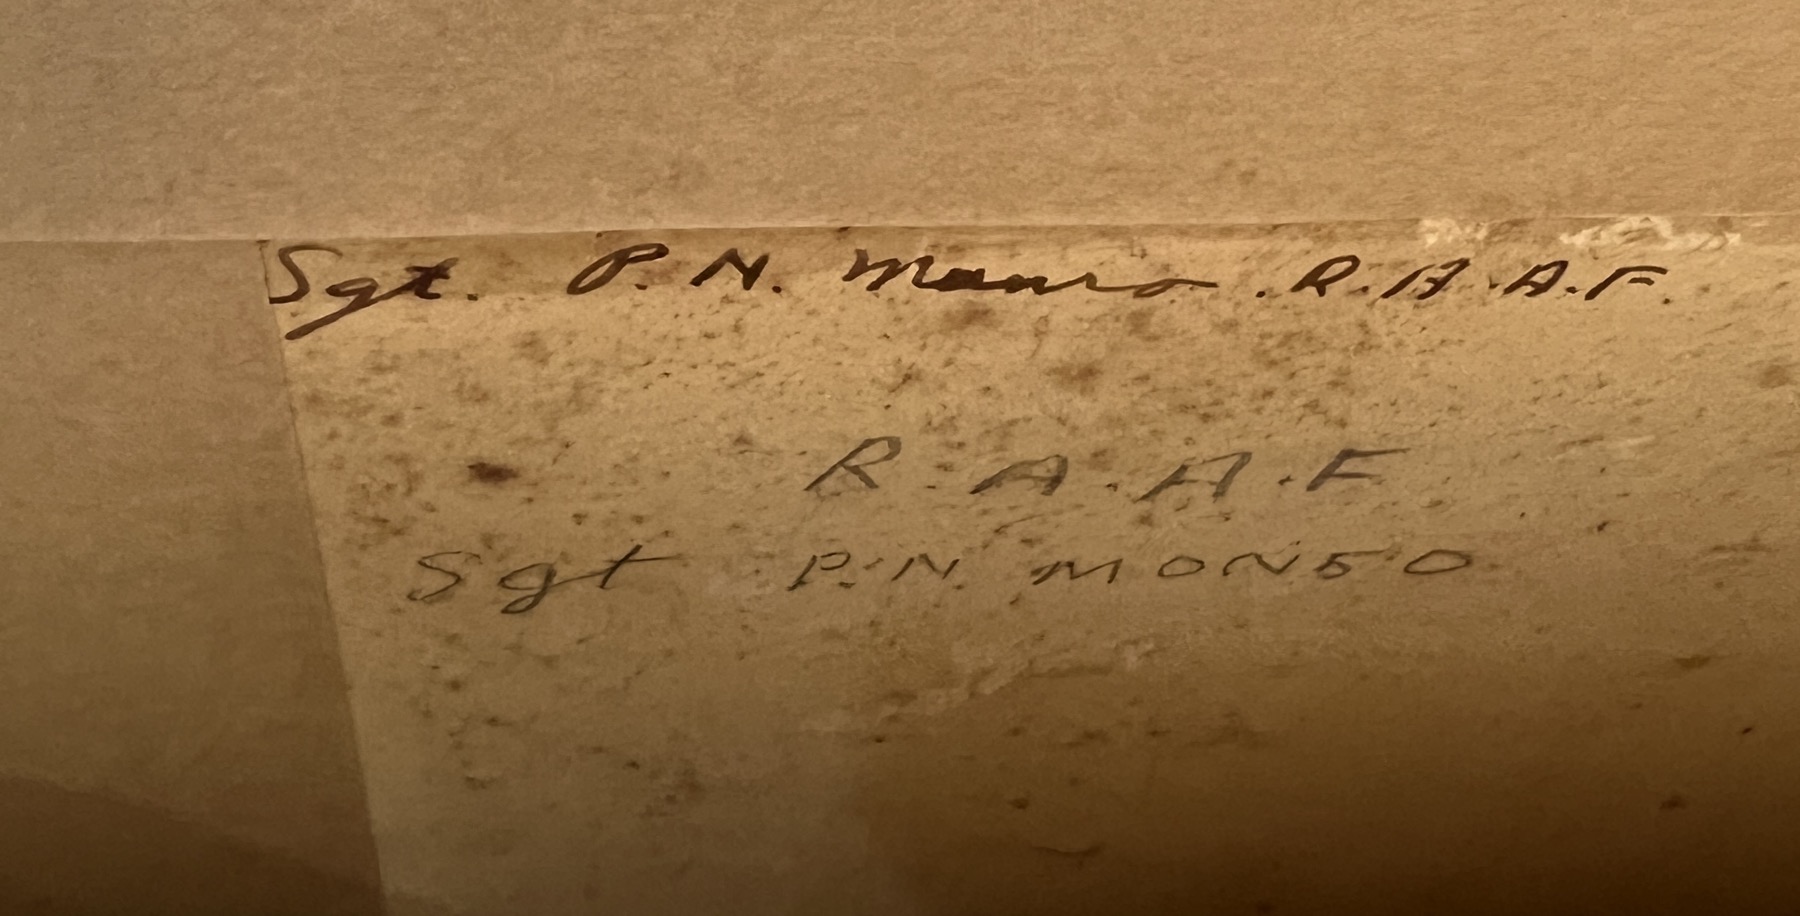 Sgt. P. N. Monro. R.A.A.F.
R.A.A.F
Sgt P.N. MONRO